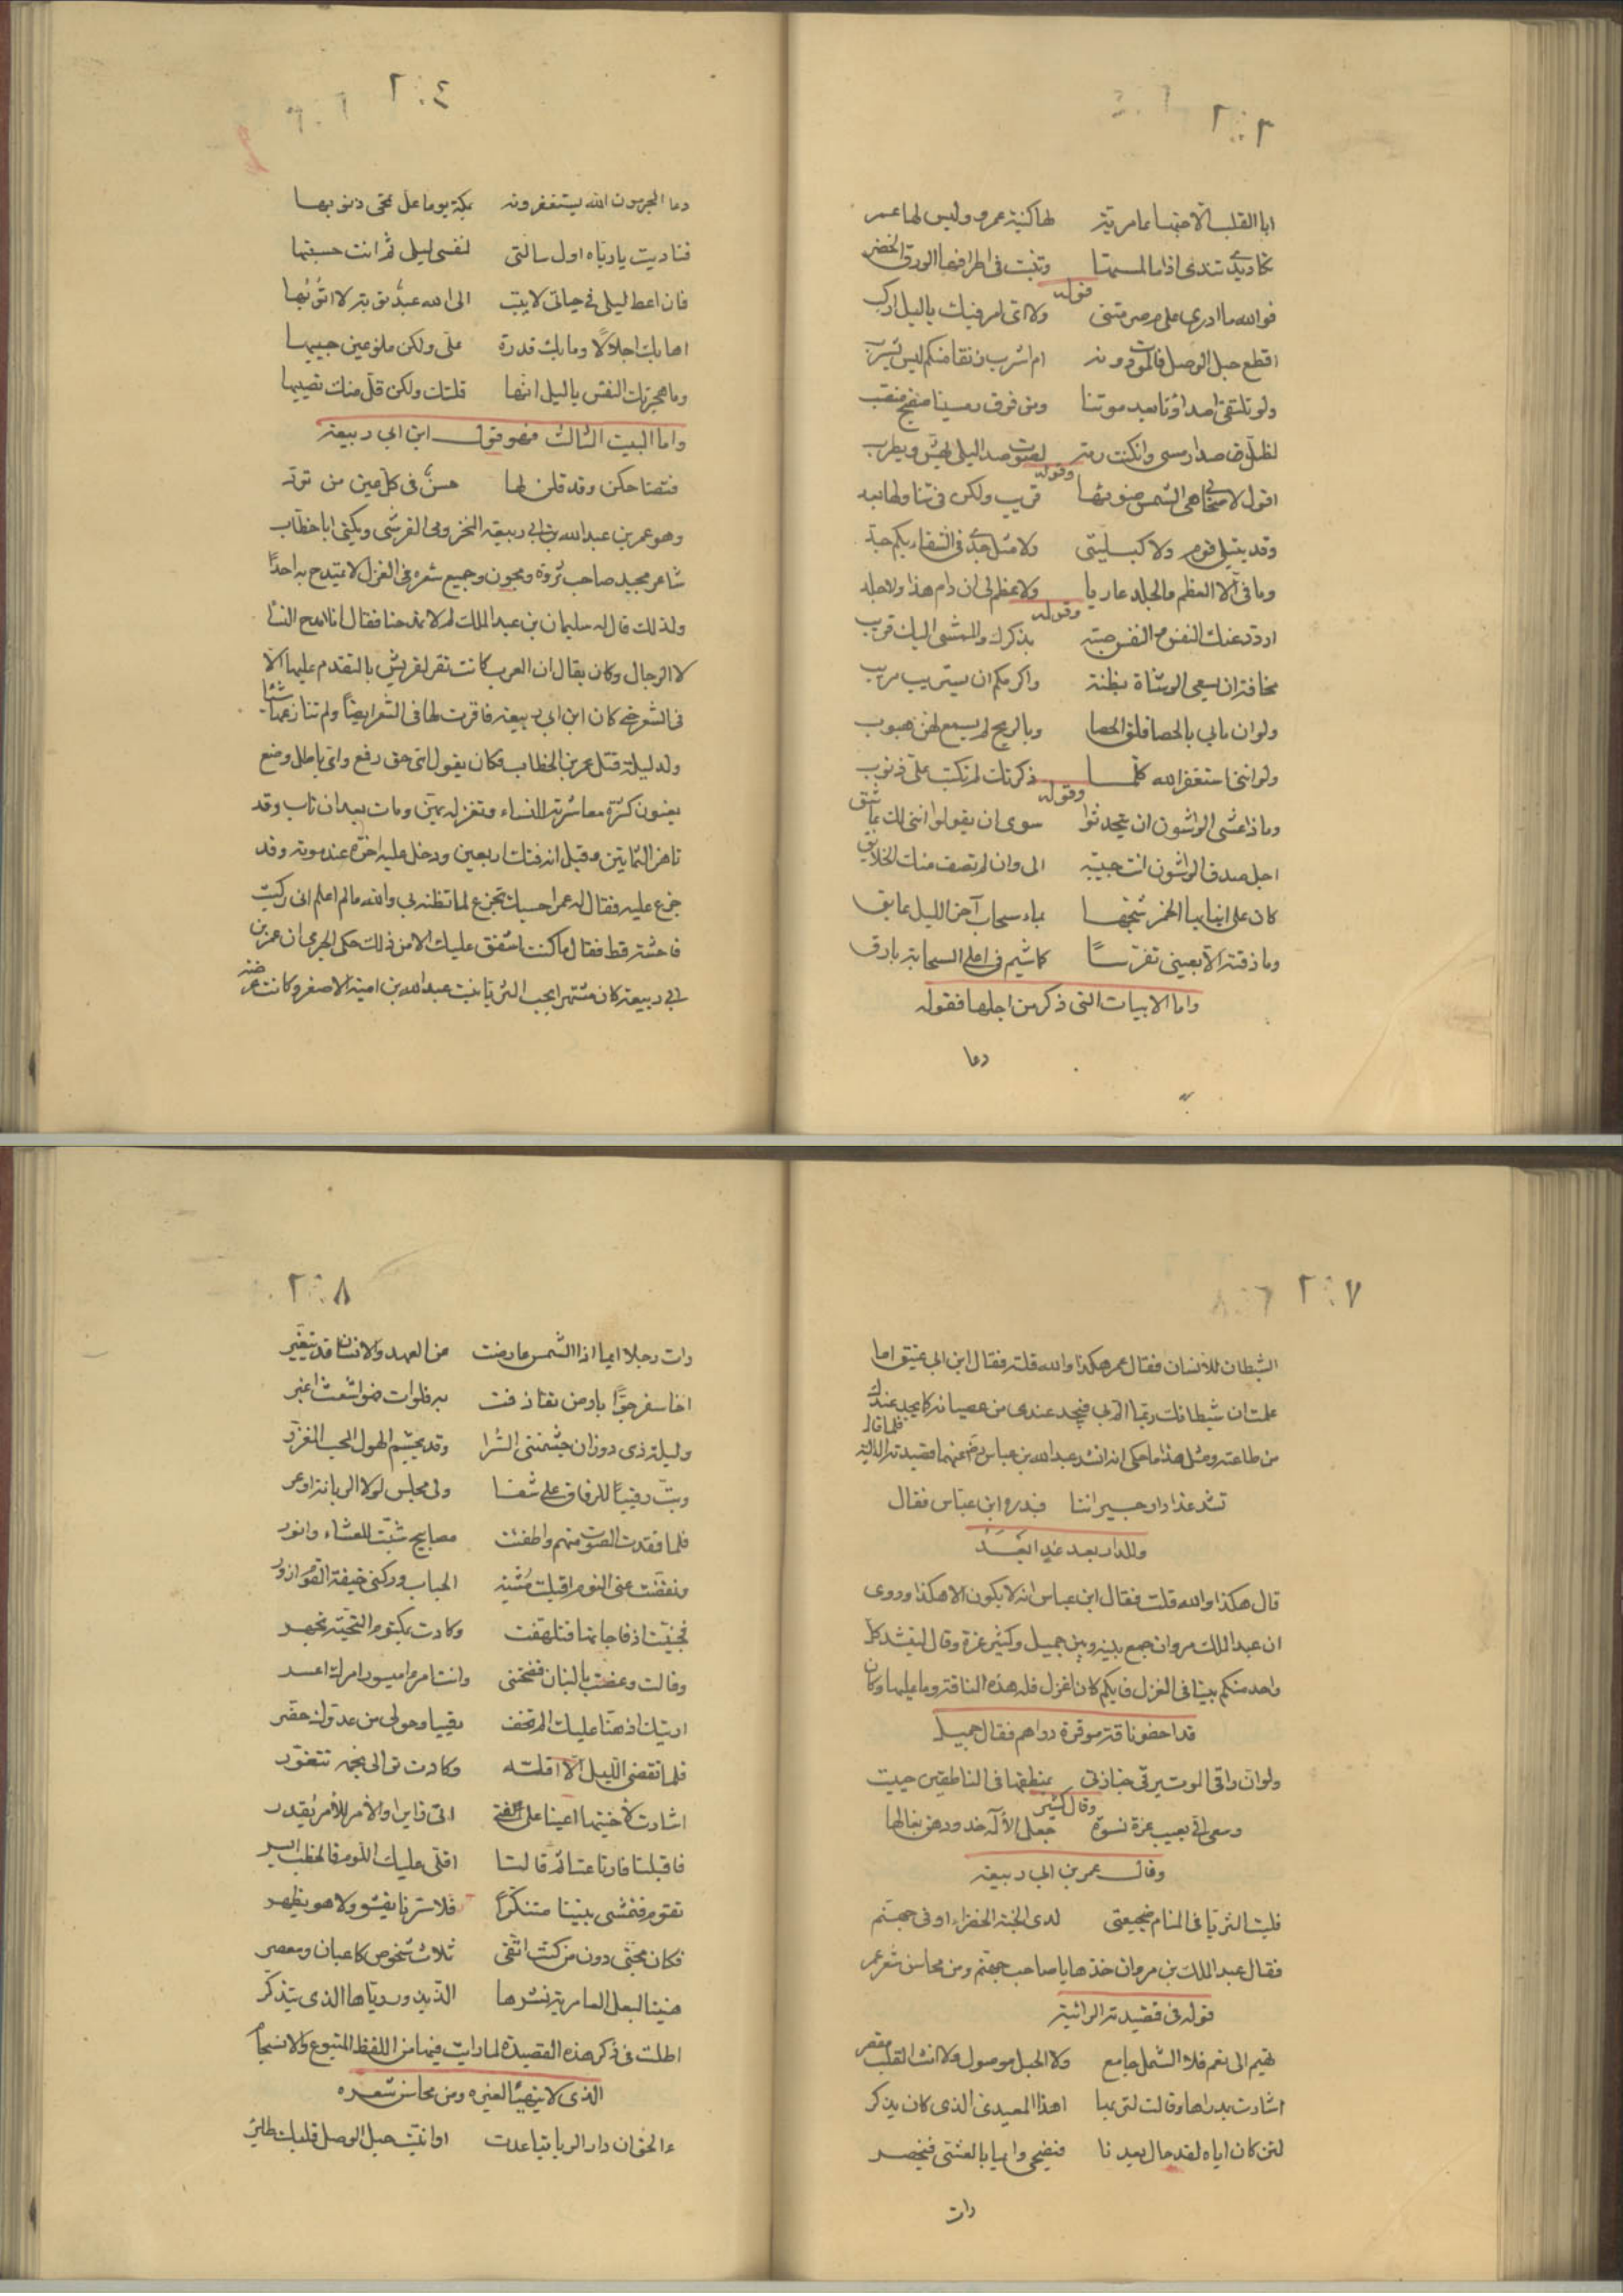 ٢٠٣
ابا القلب الا حبها عامرية لها كنية عمرو وليس لها عمر
تكاد يدي تندى اذا ما لمستها وتنبت في اطرافها الورق الخضر
وقوله
فوالله ما ادري على م صرمتني ولا اي امر فيك يا ليل اركب
ااقطع حبل الوصل فالموت دونه ام اشرب
ولو تلتقي اصداؤنا بعد موتنا ومن فوق رمسينا صفيح منصب
لظل صدا رمسي وان كنت رمة لصوت صدا ليلى يهش ويطرب
وقوله
اقول لاصحابي هي الشمس ضوئها قريب ولكن في تناولها بعد
وقد يبتلى قوم ولا كبليتي ولا مثل جدي في الشقاء بكم جد
وما في الا العظم والجلد عاريا ولا عظم لي ان دام هذا ولا جلد
وقوله
اردد عنك النفس والنفس صبة بذكرك والممشى اليك قريب
مخافة ان يسعى الوشاة بظنة واكرمكم ان يستريب مريب
ولو ان ما بي بالحصا فلق الحصا وبالريح لم يسمع لهن هبوب
ولو انني استغفر الله كلما ذكرتك لم تكتب علي ذنوب
وقوله
وماذا عسى الواشون ان يتحدثوا سوى ان يقولوا انني لك عاشق
اجل صدق الواشون انت حبيبة الي وان لم تصف منك الخلايق
كان على انيابها الخمر شجها بماء سحاب آخر الليل غابق
وما ذقته الا بعيني تفرسا كما شيم في اعلى السحابة بارق
واما الابيات التي ذكر من اجلها فقوله
دعا
٢٠٤
دعا المجرمون الله يستغفرونه بمكة يوما على تمحى ذنوبها
فناديت يا رباه اول سالتي لنفسي ليلى ثم انت حسيبها
فان اعط ليلى في حياتي لا يتب الى الله عبد توبة لا اتوبها
اهابك اجلالا وما بك قدرة علي ولكن ملء عين حبيبها
وما هجرتك النفس يا ليل انها قلتك ولكن قل منك نصيبها
واما البيت الثالث فهو قول ابن ابي ربيعة
فتضاحكن وقد قلن لها حسن في كل عين من تود
وهو عمر بن عبد الله بن ابي ربيعة المخزومي القرشي ويكنى ابا خطاب
شاعر مجيد صاحب ثروة ومجون وجميع شعره في الغزل لا يمتدح به احدا
ولذلك قال له سليمان بن عبد الملك لم لا تمدحنا فقال انا امدح النسا
لا الرجال وكان يقال ان العرب كانت تقر لقريش بالتقدم عليها الا
في الشعر حتى كان ابن ابي ربيعة فاقرت لها في الشعر ايضا ولم تنازعها شيئا
ولد ليلة قتل عمر بن الخطاب فكان يقول اي حق رفع واي باطل وضع
يعنون كثرة معاشرته للنساء وتغزله بهن ومات بعد ان تاب وقد
ناهز الثمانين وقيل انه فتك اربعين ودخل عليه اخوه عند موته وقد
جزع عليه فقال له عمر احسبك تجزع لما تظنه بي والله ما اعلم اني ركبت
فاحشة قط فقال ما كنت اشفق عليك الا من ذلك حكى ان عمر بن
ابي ربيعة كان مشتهرا بحب الثريا بنت عبد الله بن امية الاصغر وكانت
٢٠٧
الشيطان للانسان فقال عمر هكذا والله قلته فقال ابن ابي عتيق اما
علمت ان شيطانك ربما الم بي فيجد عندي من عصيانه كما يجد عندك
من طاعته ومثل هذا ما حكي انه انشد عبد الله بن عباس رضي عنهما قصيدته الدالية فلما قال
تشد غدا دار جيراننا فبدره ابن عباس فقال
وللدار بعد غد ابعد
قال هكذا والله قلت فقال ابن عباس انه لا يكون الا هكذا وروى
ان عبد الملك مروان جمع بينه وبين جميل وكثير عزة وقال لينشد كل
واحد منكم بيتا في الغزل فايكم كان اغزل فله هذه الناقة وما عليها وكان
قد احضر ناقة موقرة دراهم فقال جميل
ولو ان راقي الموت يرقي جنازتي بمنطقها في الناطقين حييت
وقال كثير
وسعى الي بعيب عزة نسوة جعل الاله خدودهن نعالها
وقال عمر بن ابي ربيعة
فليت الثريا في المنام ضجيعتي لدى الجنة الخضراء او في جهنم
فقال عبد الملك بن مروان خذها يا صاحب جهنم ومن محاسن شعر عمر
قوله في قصيدته الرائية
تهيم الى نعم فلا الشمل جامع ولا الحبل موصول ولا انت القلب مقصر
اشارت بمدراها وقالت لتربها اهذا المعيدي الذي كان يذكر
لئن كان اياه لقد حال بعدنا فيضحى وايها بالعشي فيخصر
رات
٢٠٨
رات رجلا ايما اذا الشمس عارضت عن العهد والانسان قد يتغير
اخا سفر جوابا رض تقاذفت به فلوات فهو اشعث اغبر
وليلة ذي دوران جشمتني السرا وقد يجشم الهول المحب المغرر
وبت رقيبا للرفاق على شفا ولي مجلس لولا اللبانة اوعر
فلما فقدت الصوت منهم واطفئت مصابيح شبت للعشاء وانور
ونفضت عني النوم اقبلت مشية الحباب وركني خيفة القوم ازور
فحييت اذ فاجاتها فتلهفت وكادت بمكتوم التحية تجهر
وقالت وعضت بالبنان فضحتني وانت امرء ميسور امرك اعسر
اريتك اذ هنا عليك الم تخف رقيبا وحولي من عدوك حضر
فلما تقضى الليل الا اقله وكادت توالي نجمه تتغور
اشارت لاختيها اعينا على فتى اتى زايرا والامر للامر يقدر
فاقبلتا فارتاعتا ثم قالتا اقلي عليك اللوم فالخطب ايسر
تقوم فتمشي بيننا متنكرا فلا سرنا يفشو ولا هو يظهر
فكان مجني دون من كنت اتقي ثلاث شخوص كاعبان ومعصر
هنيئا لبعل العامرية نشرها اللذيذ ورياها الذي يتذكر
اطلت في ذكر هذه القصيدة لما رايت فيها من اللفظ المتبوع والانسجام
الذي لا يتهيا لغيره ومن محاسن شعره
ءالحق ان دار الرباب تباعدت او انبت حبل الوصل قلبك طائر